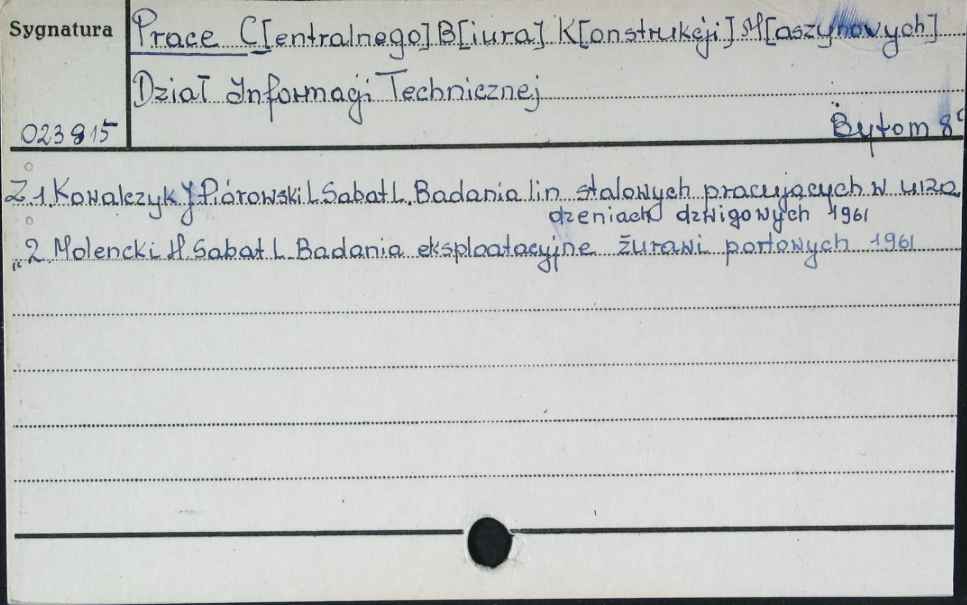 Sygnatura
Prace C[entralnego] B[iura] K[onstrukcji] M[aszynowych]
Dział Informacji Technicznej
023815
Bytom 8°
Z.1. Kowalczyk J. Piórowski L. Sabat L. Badania lin stalowych pracujących w urzą
dzeniach dźwigowych 1961
„ 2. Molencki H. Sabat L. Badania eksploatacyjne żurawi portowych 1961